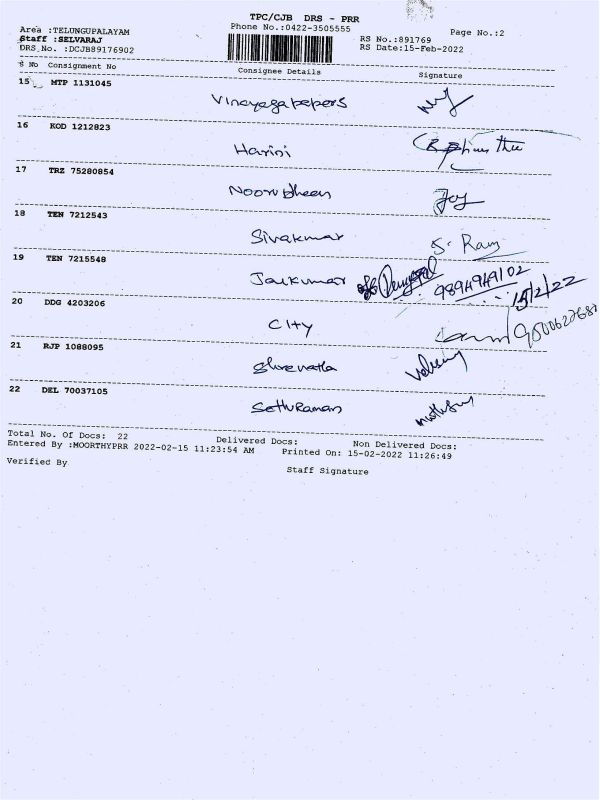 TPC/CJB DRS - PRR
Area :TELUNGUPALAYAM Phone No.:0422-3505555 Page No.:2
Staff :SELVARAJ RS No.:891769
DRS No. :DCJB89176902 RS Date:15-Feb-2022
S No Consignment No Consignee Details Signature
15 MTP 1131045
Vinayagapepers
16 KOD 1212823
Harini
17 TRZ 75280854
Noorudheen Joy
18 TEN 7212543
Sivakumar S. Ram
19 TEN 7215548
Jaikumar 9894949102
15/2/22
20 DDG 4203206
City
21 RJP 1088095
22 DEL 70037105
SethuRaman
Total No. Of Docs: 22 Delivered Docs: Non Delivered Docs:
Entered By :MOORTHYPRR 2022-02-15 11:23:54 AM Printed On: 15-02-2022 11:26:49
Verified By Staff Signature